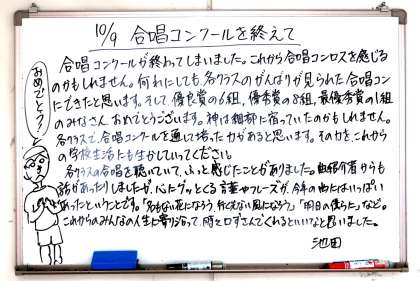 10/9 合唱コンクールを終えて
合唱コンクールが終わってしまいました。これから合唱コンロスを感じる
のかもしれません。何れにしても各クラスのがんばりが見られた合唱コン
にできたと思います。そして、優良賞の6組、優秀賞の8組、最優秀賞の1組
のみなさん、おめでとうございます。神は細部に宿っていたのかもしれません。
各クラスで、合唱コンクールを通して培った力があると思います。その力を、これから
の学校生活にも生かしていってください。
各クラスの合唱を聴いていて、ふっと感じたことがありました。曲紹介者からも
話があったりしましたが、心にグッとくる言葉やフレーズが、今年の曲にはいっぱい
あったということです。「名もない花になろう 何でもない風になろう」「明日の僕らだ」など。
これからのみんなの人生に寄りそなって、時々口ずさんでくれるといいなと思いました。
池田
おめでとう!